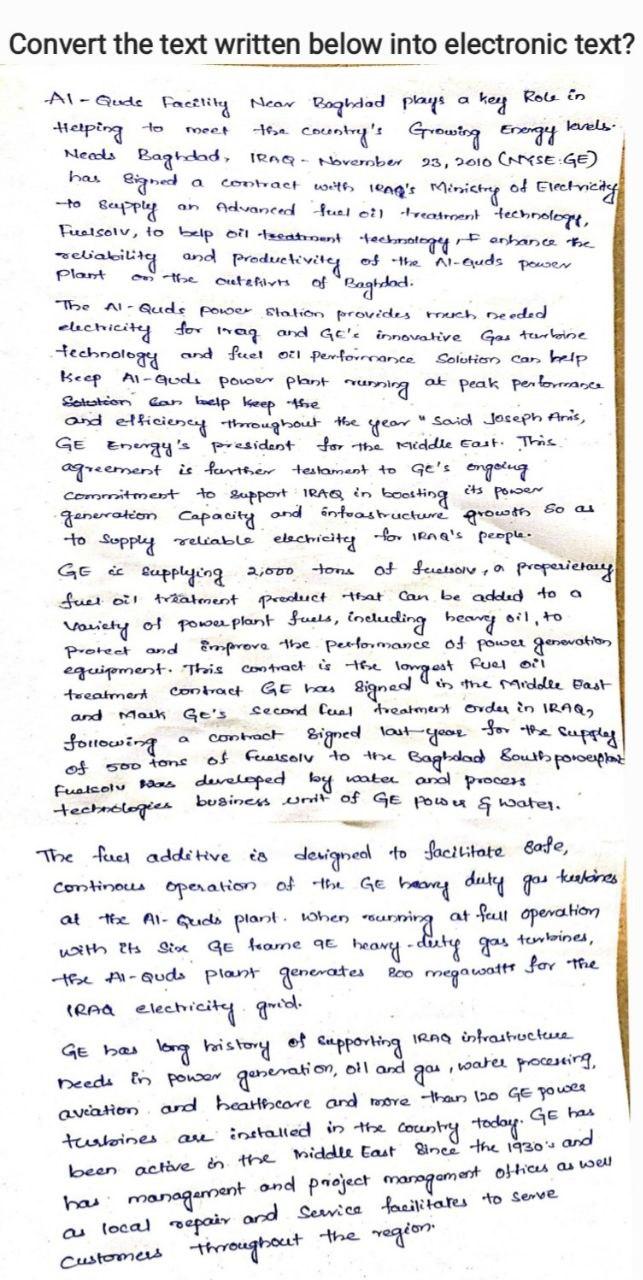 Convert the text written below into electronic text?
Al-Quds Facility Near Baghdad plays a key Role in
Helping to meet the country's Growing Energy levels.
Needs Baghdad, IRAQ - November 23, 2010 (NYSE:GE)
has signed a contract with IRAQ's Ministry of Electricity
to supply an Advanced fuel oil treatment technology,
Fuelsolv, to help oil treatment technology, enhance the
reliability and productivity of the Al-Quds power
Plant on the outskirts of Baghdad.
The Al-Quds power Station provides much needed
electricity for Iraq and GE's innovative Gas turbine
technology and fuel oil performance Solution can help
Keep Al-Quds power plant running at peak performance
Solution can help keep the
and efficiency throughout the year" said Joseph Anis,
GE Energy's president for the Middle East. This
agreement is further testament to GE's ongoing
commitment to support IRAQ in boosting its power
generation Capacity and infrastructure growth so as
to Supply reliable electricity for IRAQ's people.
GE is supplying 2,000 tons of fuelsolv, a properietary
fuel oil treatment product that can be added to a
Variety of power plant fuels, including heavy oil, to
Protect and improve the performance of power generation
equipment. This contract is the longest fuel oil
treatment contract GE has signed in the Middle East
and Mark GE's second fuel treatment order in IRAQ,
following a contract signed last year for the supply
of 500 tons of Fuelsolv to the Baghdad South powerplant
Fuelsolv was developed by water and process
technologies business unit of GE power & water.
The fuel additive is designed to facilitate safe,
continous operation of the GE heavy duty gas turbines
at the Al-Quds plant. when running at full operation
with its Six GE frame 9E heavy-duty gas turbines,
the Al-Quds plant generates 800 megawatts for the
IRAQ electricity grid.
GE has long history of supporting IRAQ infrastructure
needs in power generation, oil and gas, water processing,
aviation and healthcare and more than 120 GE power
turbines are installed in the country today. GE has
been active in the middle East since the 1930's and
has management and project management offices as well
as local repair and Service facilitates to serve
Customers throughout the region.